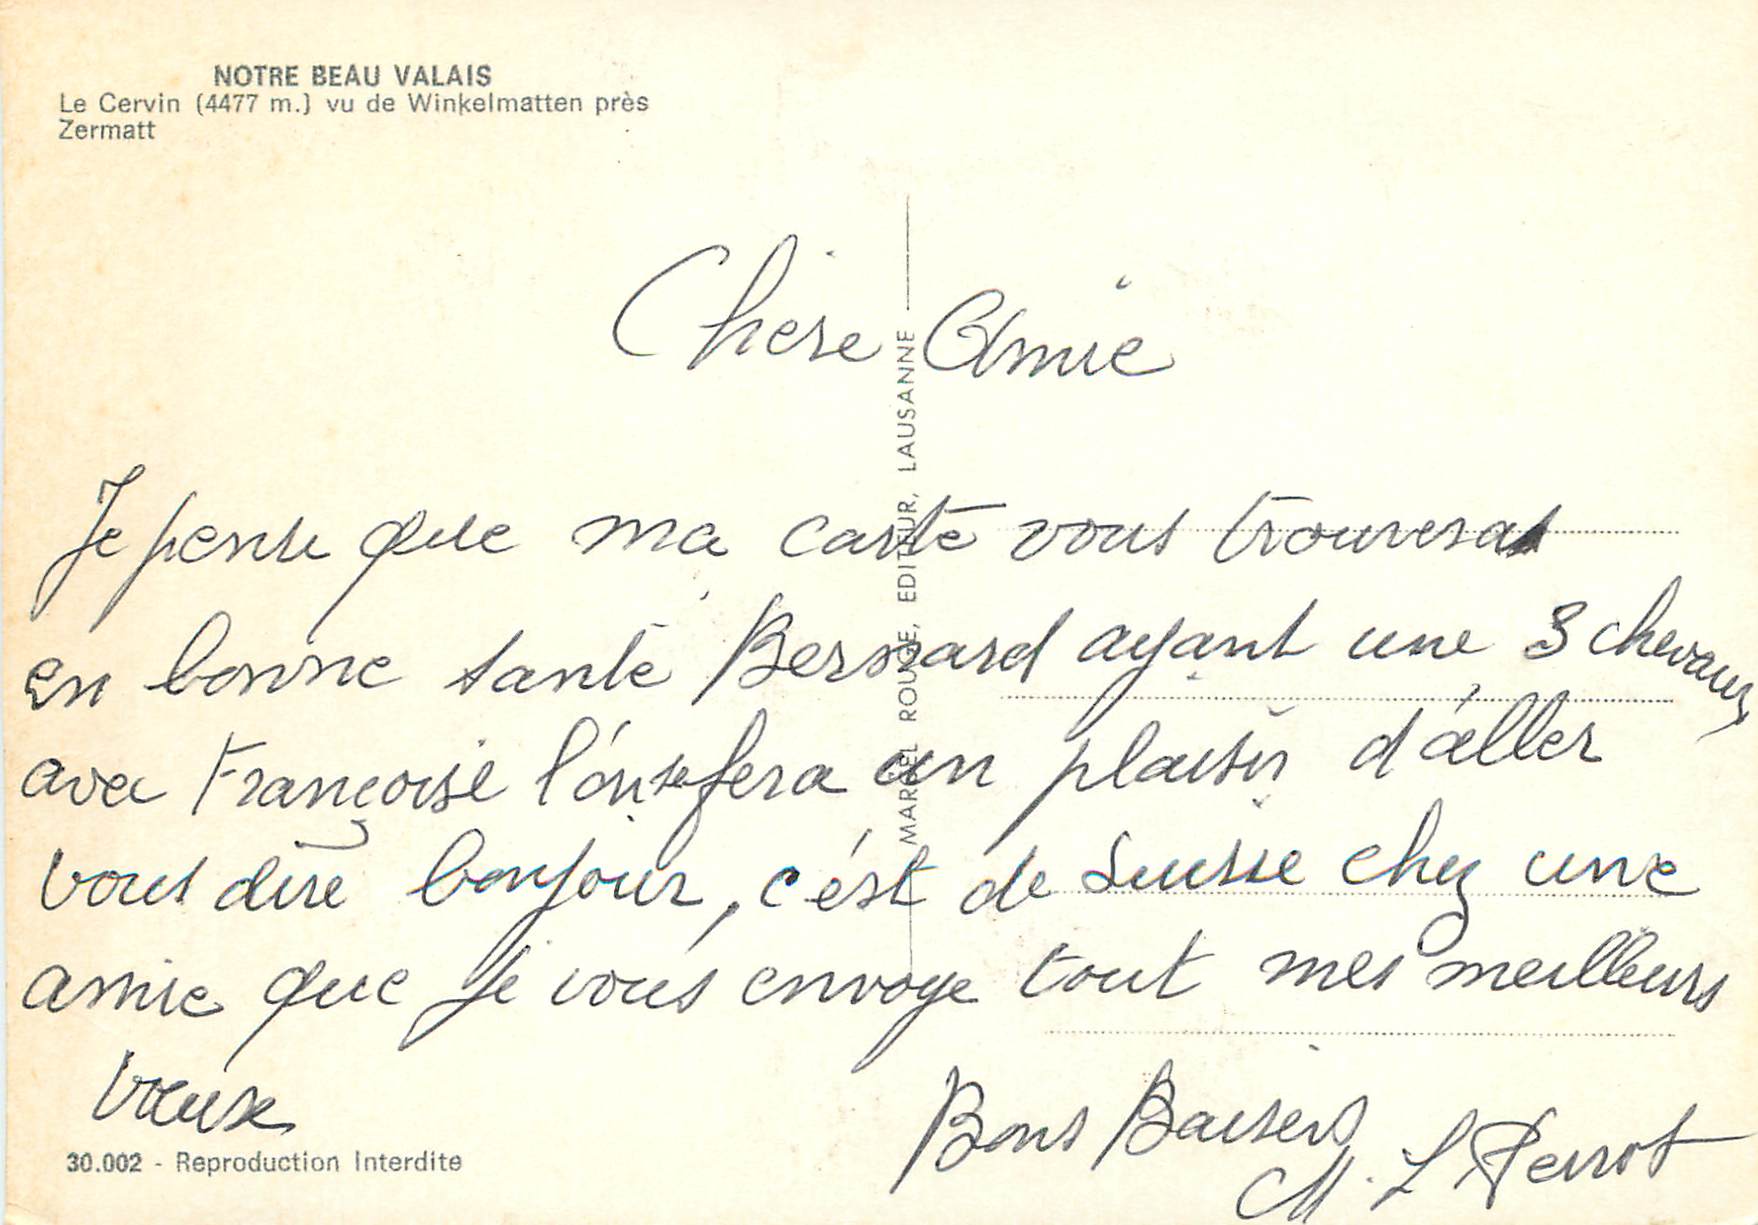 NOTRE BEAU VALAIS
Le Cervin (4477 m.) vu de Winkelmatten près
Zermatt
MARCEL ROUGE, EDITEUR, LAUSANNE
Chère Amie
Je pense que ma carte vous trouvera
en bonne santé Bernard ayant une 3 chevaux
avec Françoise l'on se fera un plaisir d'aller
vous dire bonjour, c'ést de Suisse chez une
amie que je vous envoye tout mes meilleurs
Vœux
Bons Baisers
M. L Perrot
30.002 - Reproduction Interdite